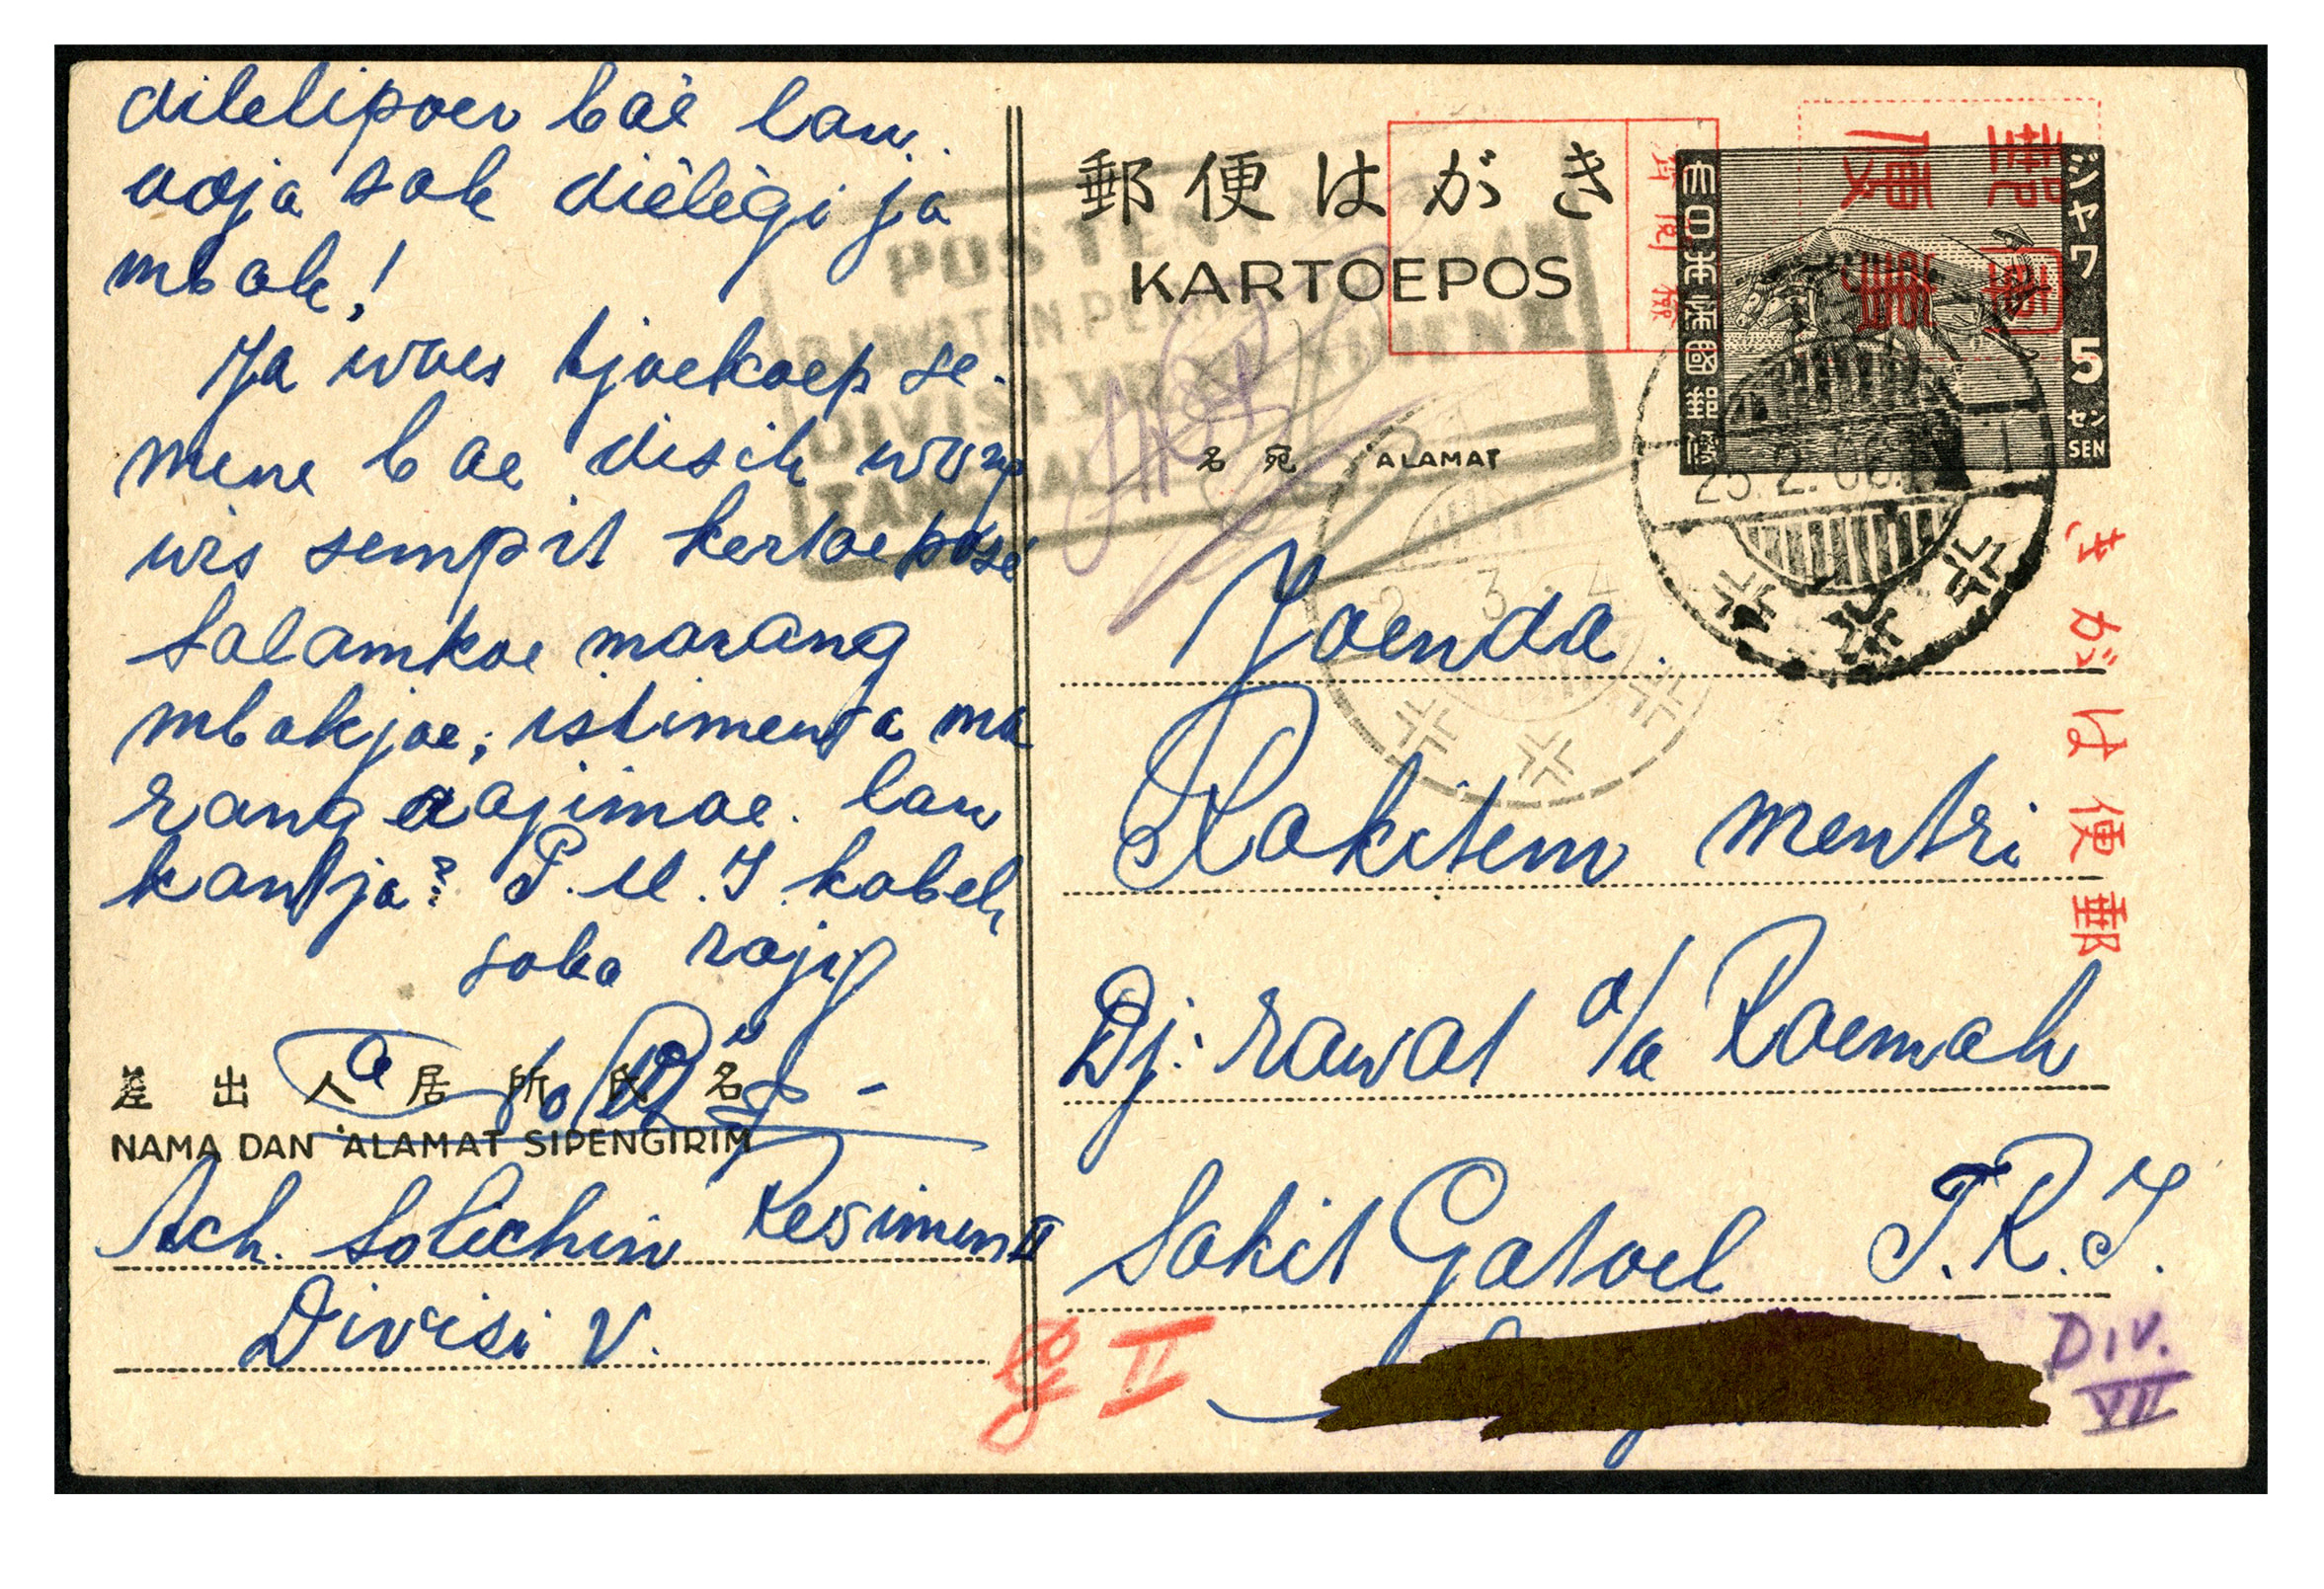 dilelipoer baé lan
aoja sok diélègi ja
mbak!
Ja woes tjoekoep se-
mene bae disik wong
wis sempit kertoeposé
Salamkoe marang
mbakjoe; istimewa ma
rang adjimoe. lan
kantja² P.M.I. kabeh
soko
差出人居所氏名
NAMA DAN 'ALAMAT SIPENGIRIM
Ach. Solichin Resimen II
Divisi V.
郵便はがき
KARTOEPOS
POS TENTARA
DIVISI
TANGGAL
名宛 'ALAMAT
大日本帝國郵便
ジャワ
5
セン
SEN
25.2.06
郵便はがき
Joenda
Rakitem mentri
Dj: rawat d/a Roemah
Sakit Gatoel T.R.I.
II
DIV.
VII